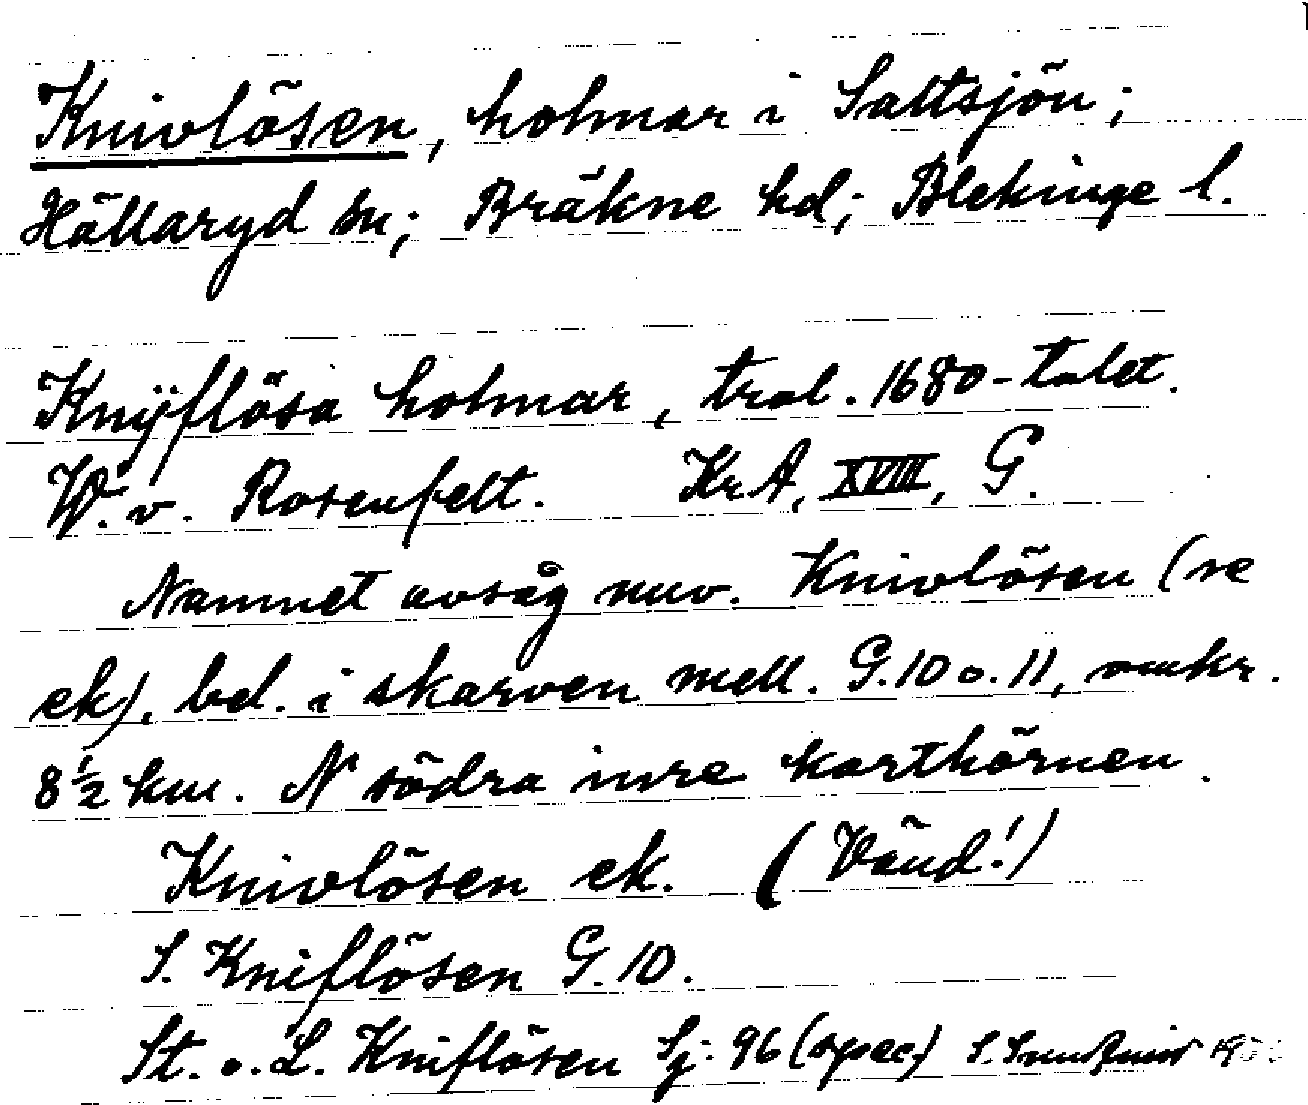 Knivlösen, holmar i Saltsjön;
Hällaryd sn; Bräkne hd; Blekinge l.
Knÿflösa holmar, trol. 1680-talet.
W. v. Rosenfelt. KrA, XVIII, G.
Namnet avsåg nuv. Knivlösen (se
ek), bel. i skarven mell. G.10 o. 11, omkr.
8½ km. N södra inre karthörnen.
Knivlösen ek. (Vänd!)
S. Kniflösen G.10.
St. o. L. Kniflösen Sj. 96 (spec)